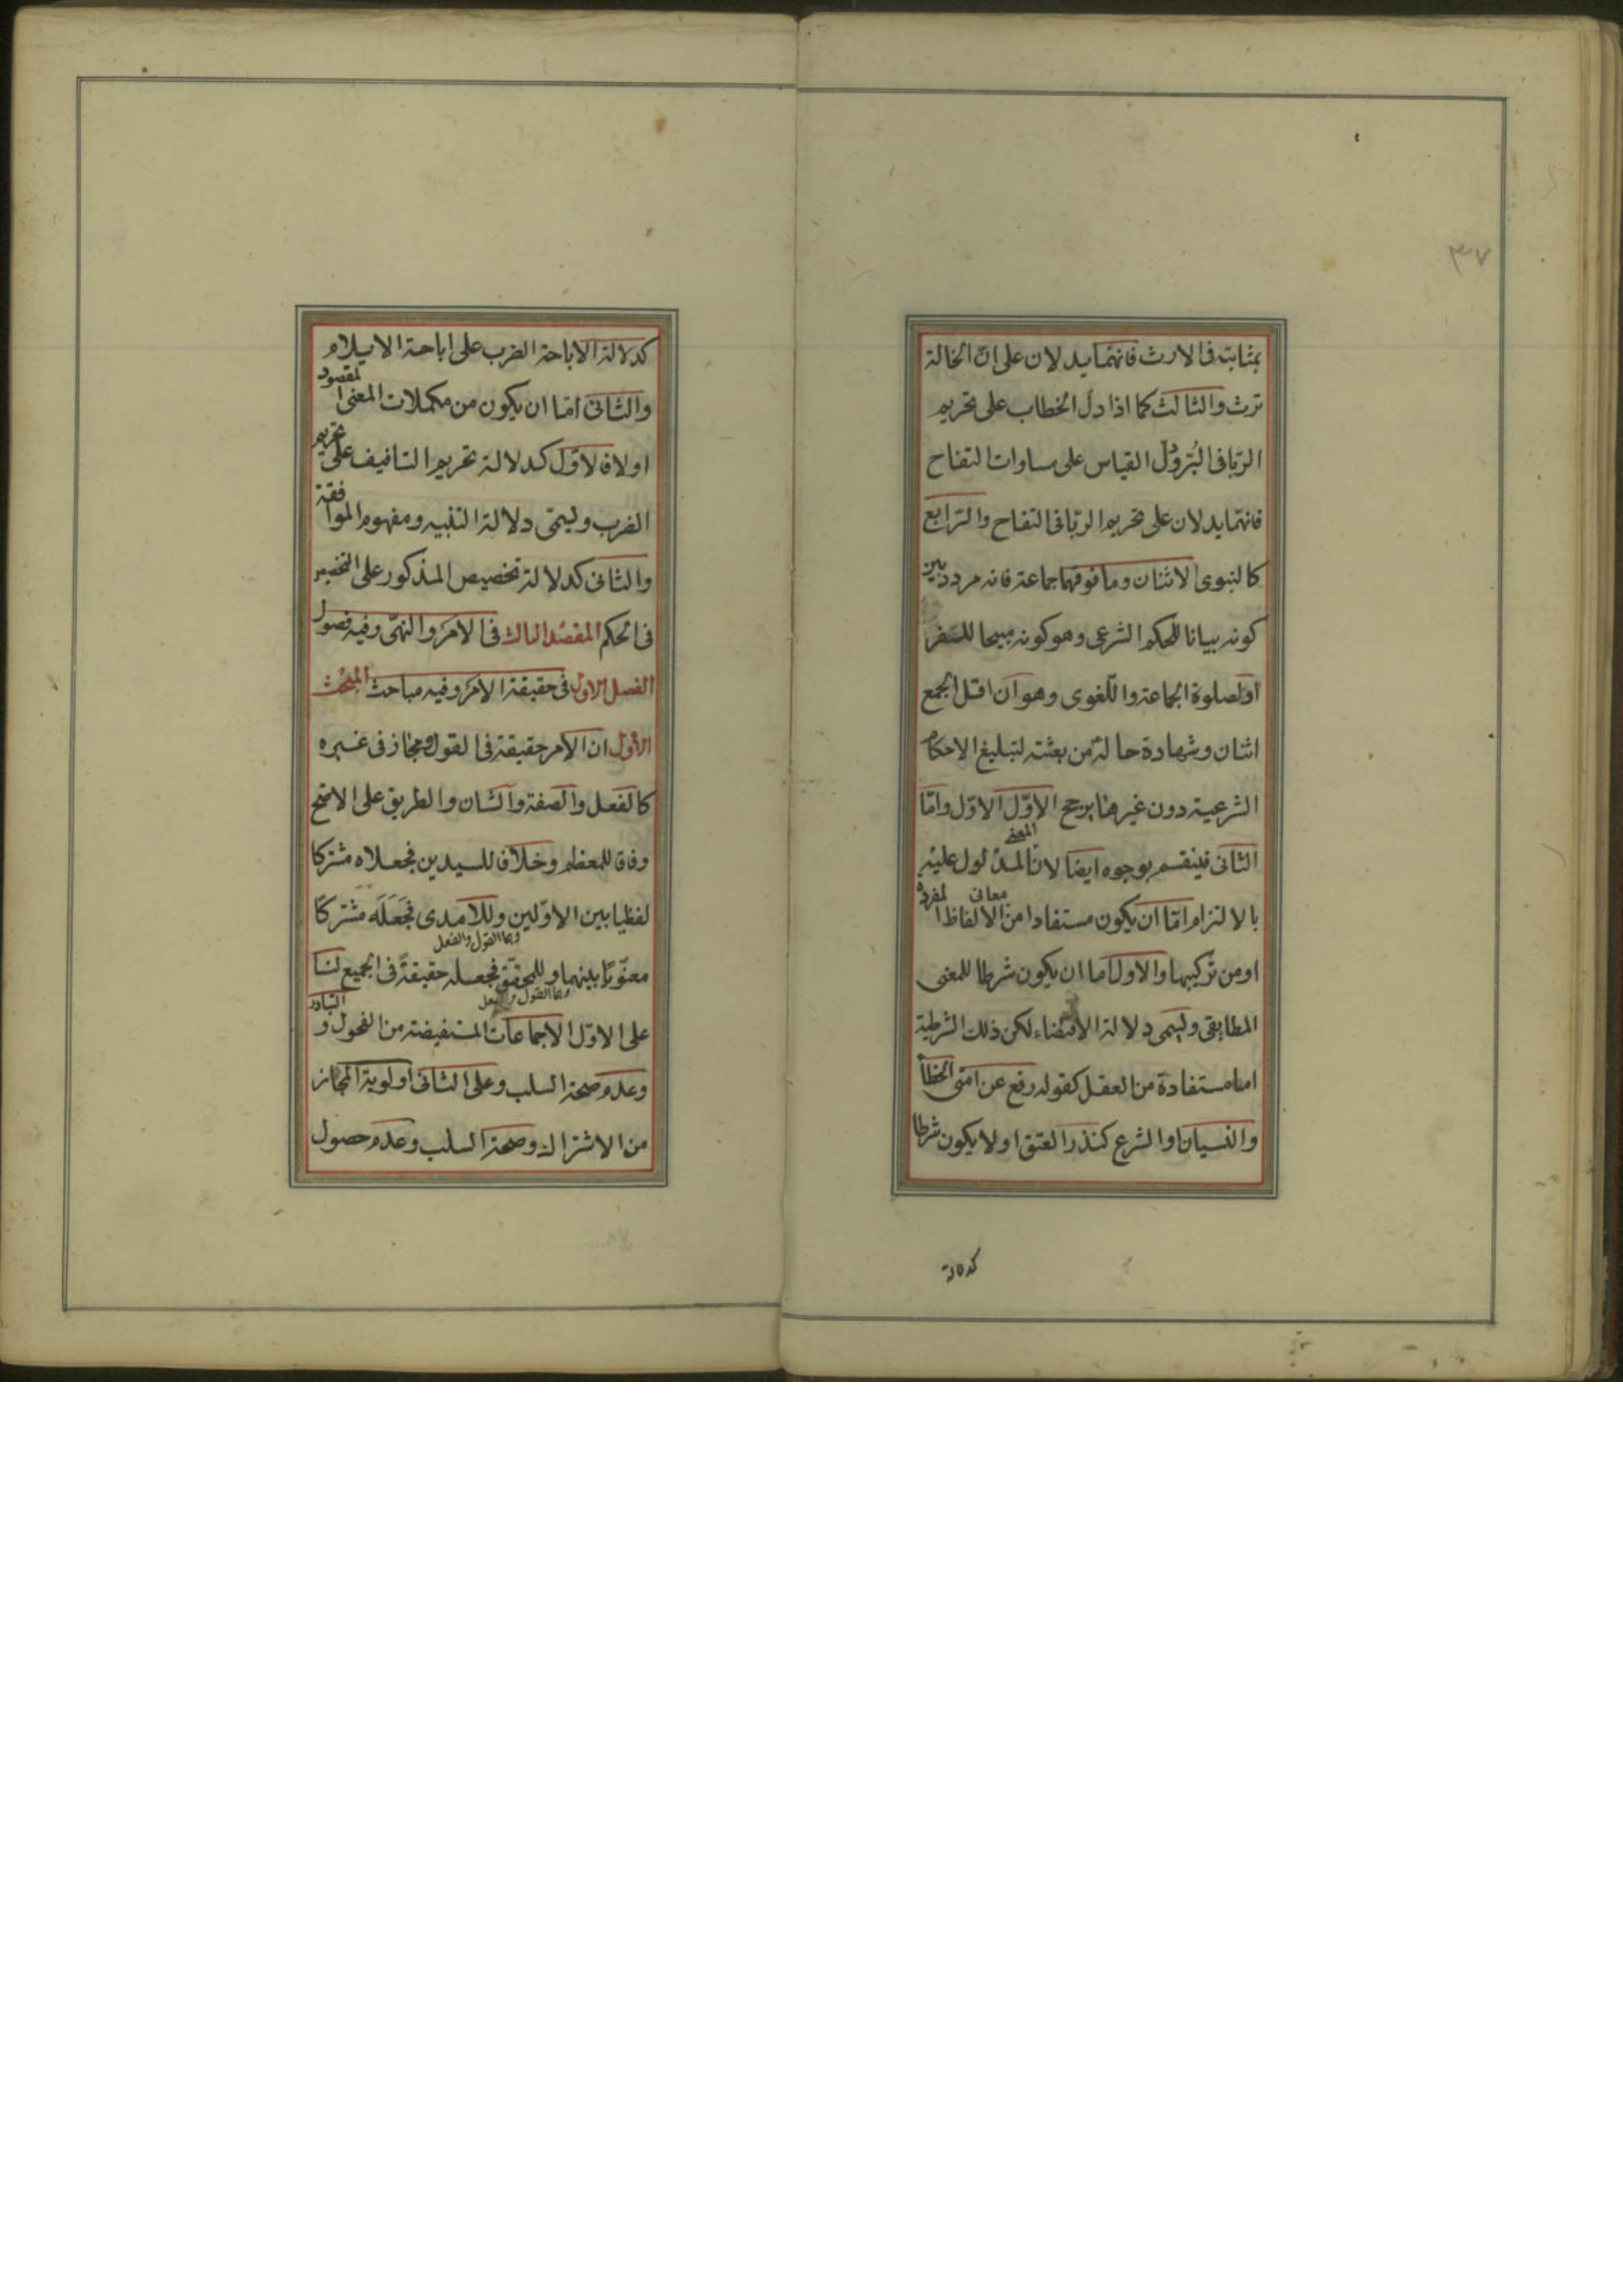 ٣٧
بمثابته فى الارث فانهما يدلان على ان الخالة
ترث والثالث كما اذا دل الخطاب على تحريم
الربا فى البر ودل القياس على مساوات التفاح
فانهما يدلان على تحريم الربا فى التفاح والرابع
كالنبوى الاثنان وما فوقهما جماعة فانه مردد بين
كونه بيانا للحكم الشرعى وهو كونه مبيحا للسفر
او لصلوة الجماعة واللغوى وهو ان اقل الجمع
اثنان وشهادة حاله من بعثته لتبليغ الاحكام
الشرعية دون غيرها يرجح الاول الاول واما
الثانى فينقسم بوجوه ايضا لان المعنى المدلول عليه
بالالتزام اما ان يكون مستفادا من معانى الالفاظ المفردة
او من تركيبها والاول اما ان يكون شرطا للمعنى
المطابقى ويسمى دلالة الاقتضاء لكن ذلك الشرطية
اما مستفادة من العقل كقوله رفع عن امتى الخطأ
والنسيان او الشرع كنذر العتق او لا يكون شرطا
كدلالة
كدلالة الاباحة الضرب على اباحة الايلام
والثانى اما ان يكون من مكملات المعنى المقصود
اولا فالاول كدلالة تحريم التافيف على تحريم
الضرب ويسمى دلالة التنبيه ومفهوم الموافقة
والثانى كدلالة تخصيص المذكور على التخصيص
فى الحكم المقصد الثالث فى الامر والنهى وفيه فصول
الفصل الاول فى حقيقة الامر وفيه مباحث المبحث
الاول ان الامر حقيقة فى القول ومجاز فى غيره
كالفعل والصفة والشان والطريق على الاصح
وفاق للمعظم وخلاف للسيدين فجعلاه مشتركا
لفظيا بين الاولين وللامدى فجعله مشتركا
وهما القول والفعل
معنويا بينهما وللمحقق فجعله حقيقة فى الجميع لنا
وهما القول والفعل
على الاول الاجماعات المستفيضة من الفحول و التبادر
وعدم صحة السلب وعلى الثانى اولوية المجاز
من الاشتراك وصحة السلب وعدم حصول